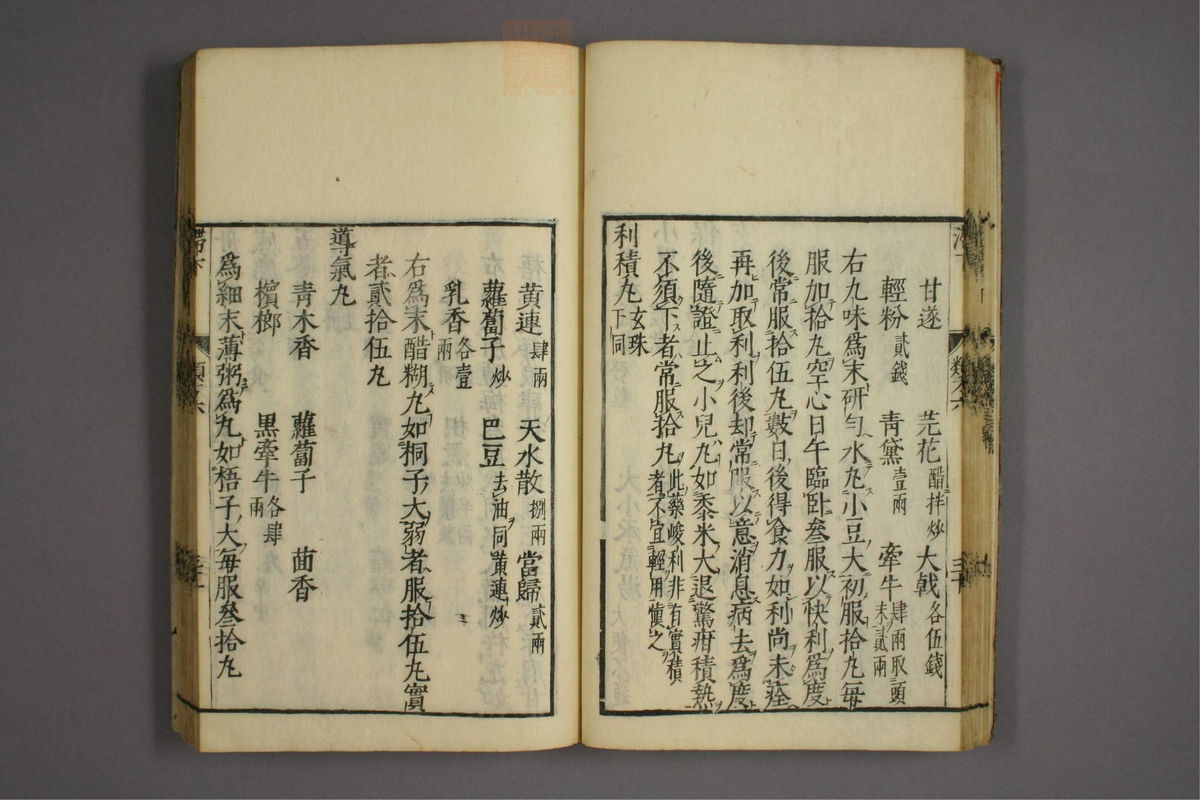 甘遂 芫花醋拌炒 大戟各伍錢
輕粉貳錢 靑黛壹兩 牽牛肆兩取頭末貳兩
右九味爲末研勻水丸小豆大初服拾丸每
服加拾丸空心日午臨卧叁服以快利爲度
後常服拾伍丸數日後得食力如利尚未痊
再加取利利後却常服以意消息病去爲度
後隨證止之小兒丸如黍米大退驚疳積熱
不須下者常服拾丸此藥峻利非有實積者不宜輕用愼之
利積丸玄珠下同
黄連肆兩 天水散捌兩 當歸貳兩
蘿蔔子炒 巴豆去油同黄連炒
乳香各壹兩
右爲末醋糊丸如桐子大弱者服拾伍丸實
者貳拾伍丸
導氣丸
靑木香 蘿蔔子 茴香
檳榔 黒牽牛各肆兩
爲細末薄粥爲丸如梧子大每服叁拾丸